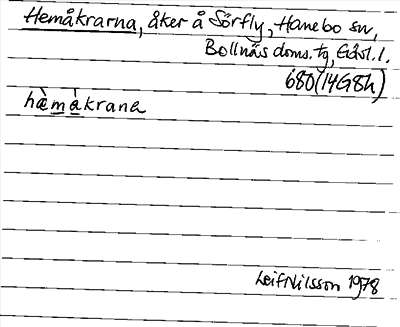 Hemåkrarna, åker å Sörfly, Hanebo sn,
Bollnäs doms. tg, Gävl. l.
680 (14G8h)
hæ̀mákrana
Leif Nilsson 1978